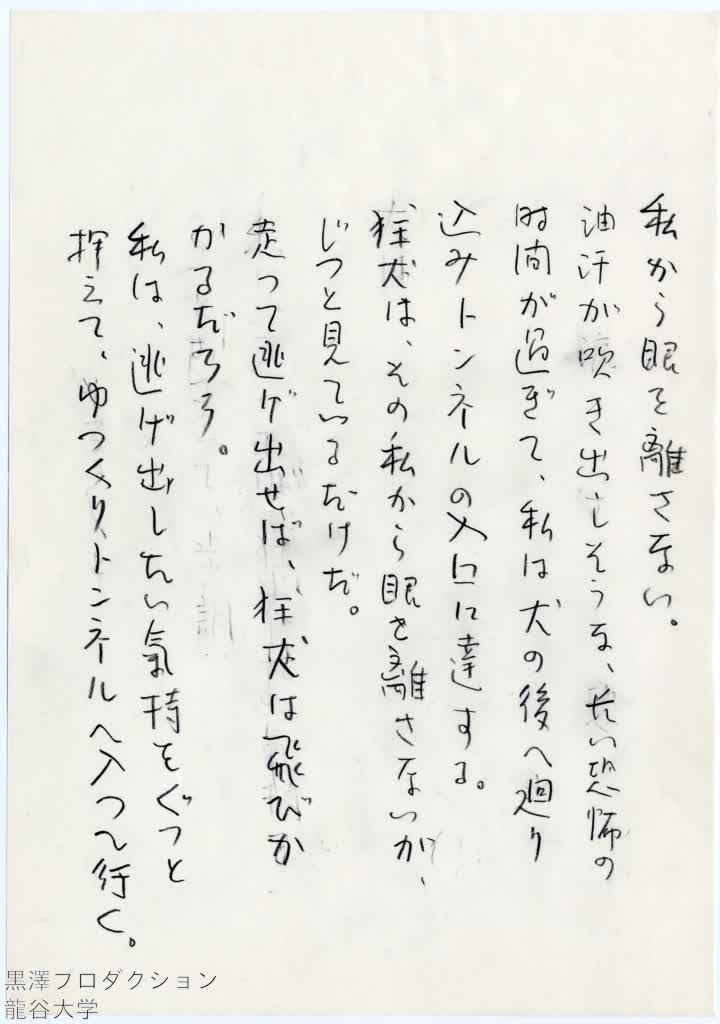 私から眼を離さない。
油汗が吹き出しそうな、長い恐怖の
時間が過ぎて、私は犬の後へ廻り
込みトンネルの入口に達する。
狂犬は、その私から眼を離さないが、
じつと見ているだけだ。
走って逃げ出せば、狂犬は飛びか
かるだろう。
私は、逃げ出したい氣持をぐつと
押えて、ゆつくりトンネルへ入つて行く。
黒澤プロダクション
龍谷大学